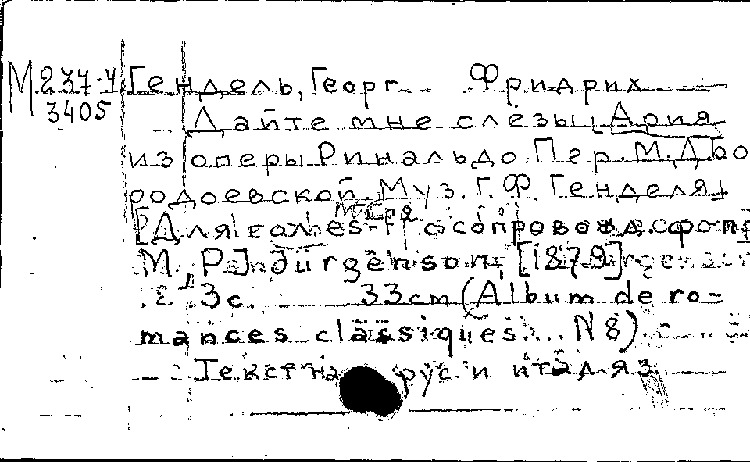 М 237-4 Гендель, Георг Фридрих
3405 Дайте мне слезы! Ария
из оперы Ринальдо. Пер. М. Дво
родоевской. Муз. Г. Ф. Генделя.
[Для голоса с сопровожд. ф-п
М., P. Jurgenson, [1879]
3 с. 33 cm (Album de ro-
mances classiques... N 8)
Текст на рус. и итал. яз.